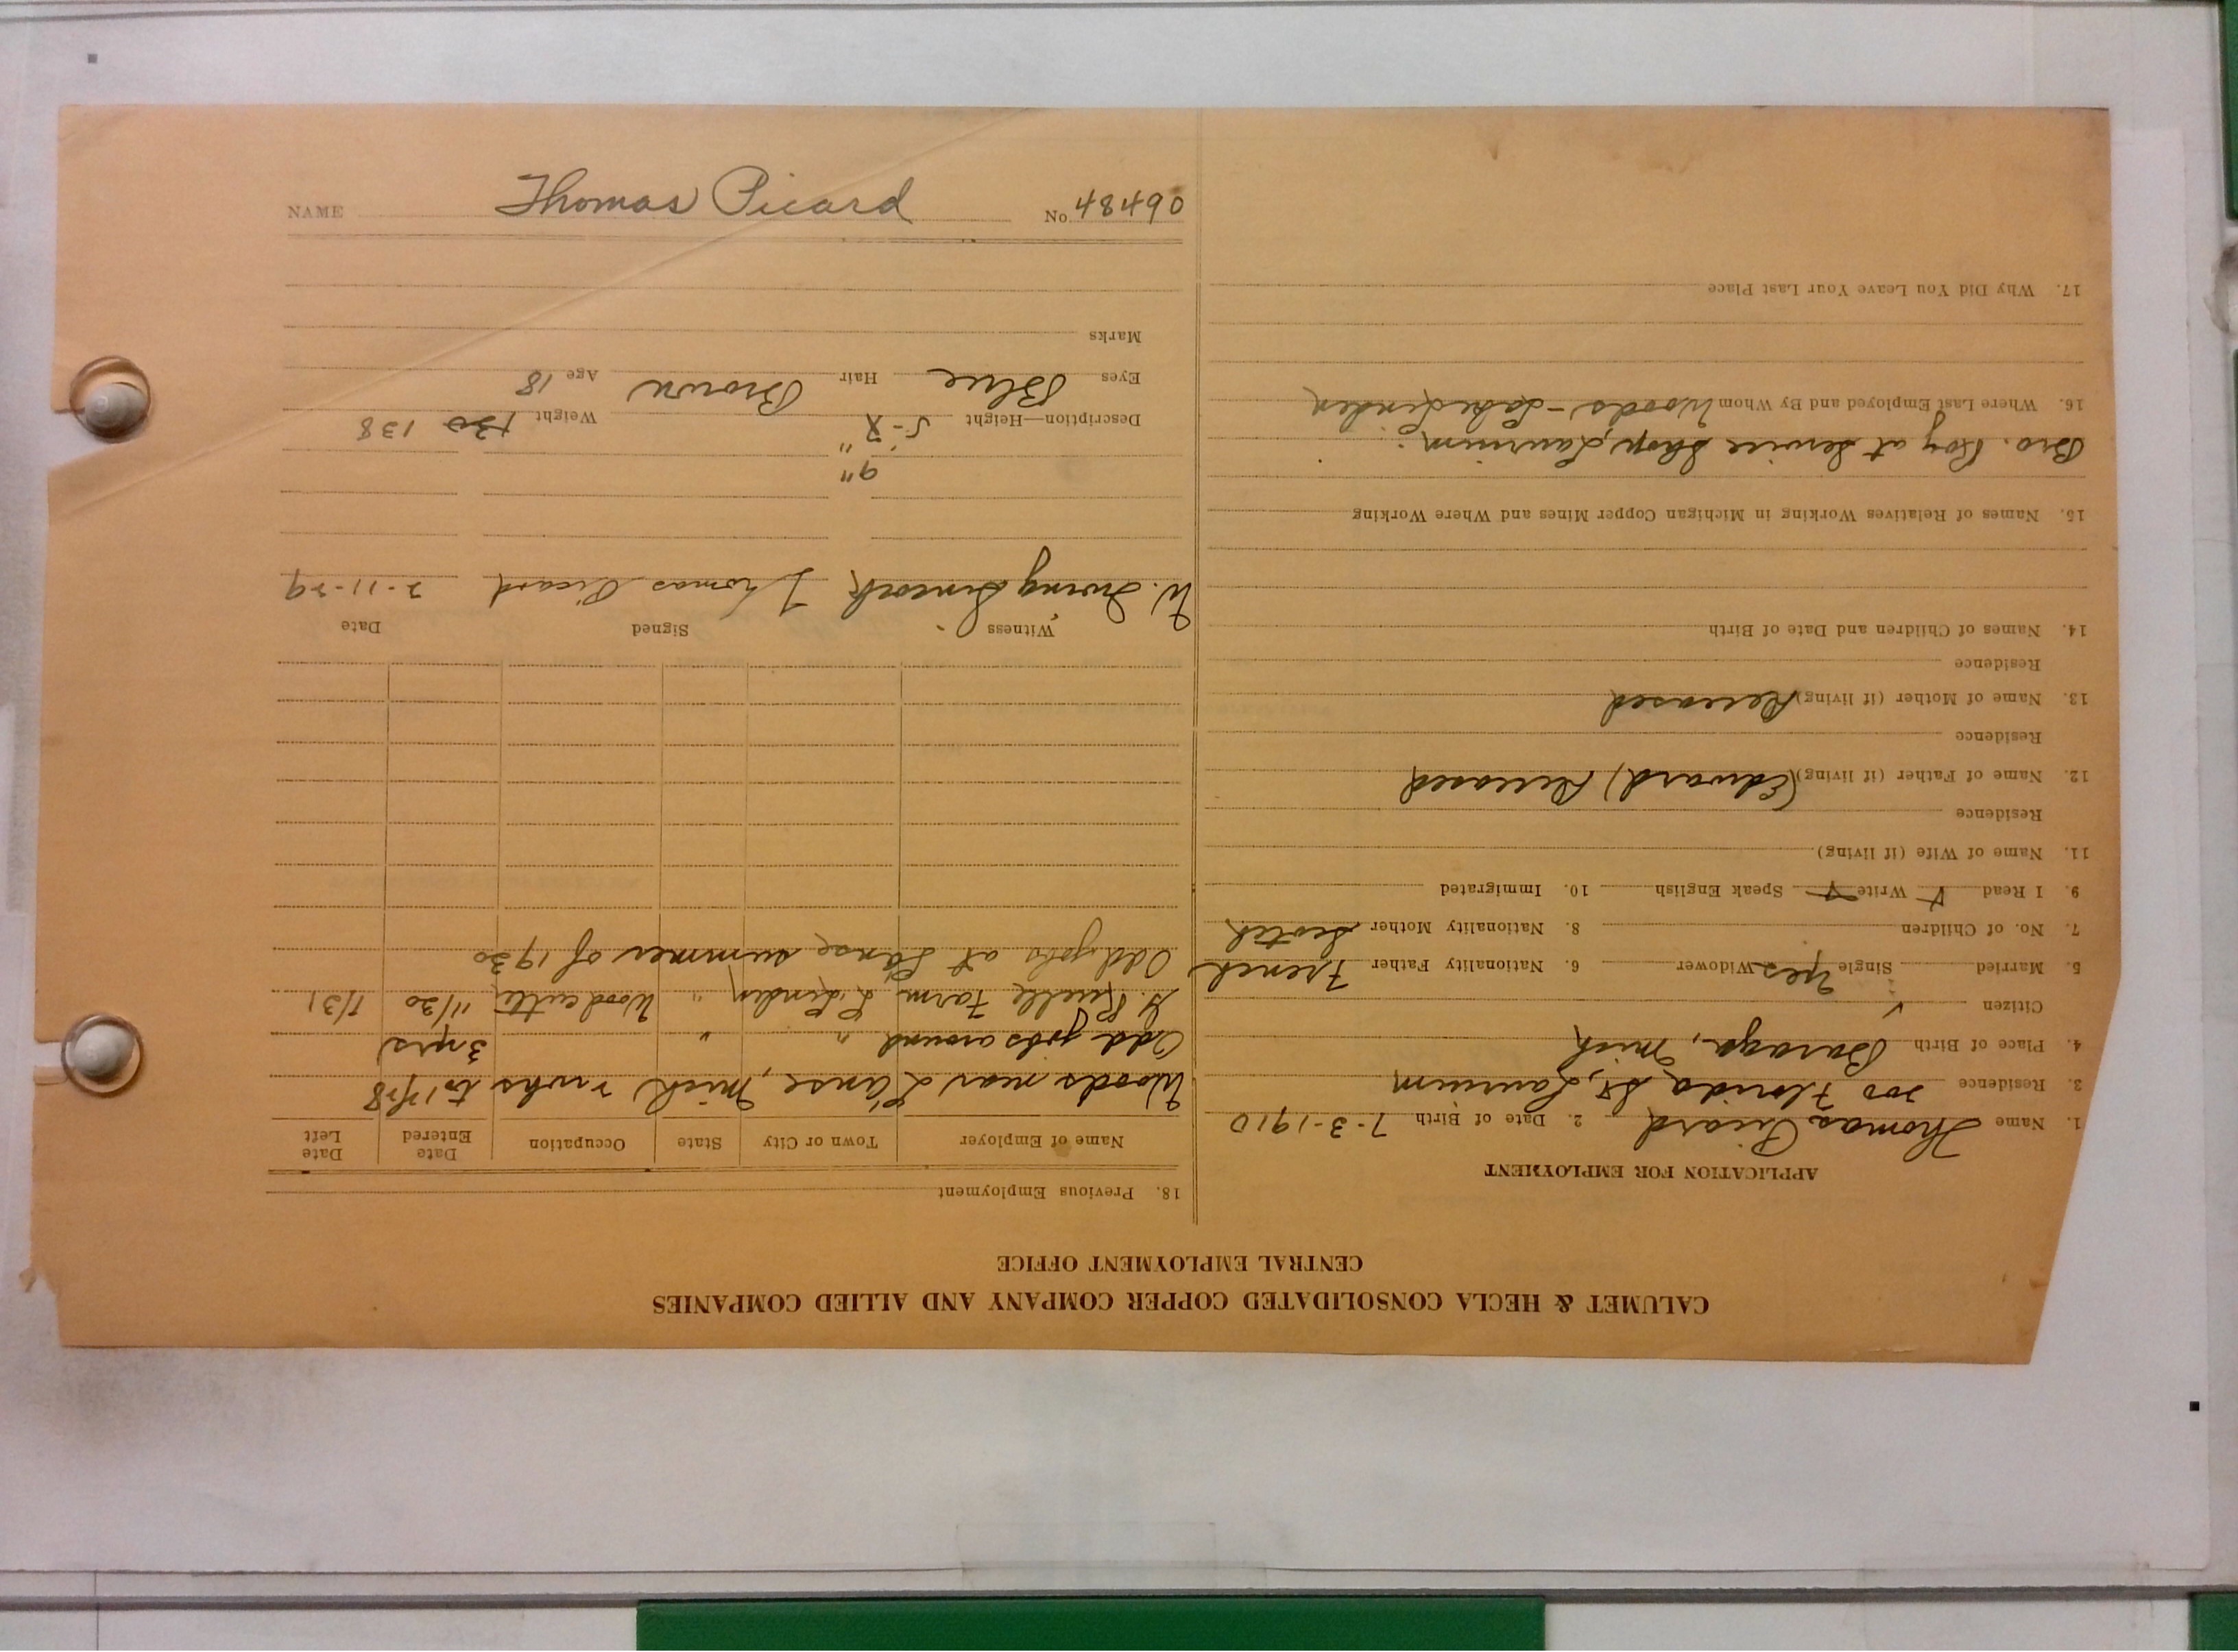 CALUMET & HECLA CONSOLIDATED COPPER COMPANY AND ALLIED COMPANIES
CENTRAL EMPLOYMENT OFFICE
APPLICATION FOR EMPLOYMENT
1. Name Thomas Picard 2. Date of Birth 7-3-1910
3. Residence Florida St, Laurium
4. Place of Birth Baraga, Mich
Citizen ✓
5. Married Single Yes Widower 6. Nationality Father French
7. No. of Children 8. Nationality Mother Scotch
9. I Read Write Speak English 10. Immigrated
11. Name of Wife (if living)
Residence
12. Name of Father (if living) (Edward) Deceased
Residence
13. Name of Mother (if living) Deceased
Residence
14. Names of Children and Date of Birth
15. Names of Relatives Working in Michigan Copper Mines and Where Working
Bro. Roy at Service Shop, Laurium.
16. Where Last Employed and By Whom Woods - Lake Linden
17. Why Did You Leave Your Last Place
18. Previous Employment
Name of Employer Town or City State Occupation Date Entered Date Left
Woods near L'anse, Mich 2 wks to 1/28
Odd jobs around " " 3 yrs
Farm L. Linden " Wood cutter 11/30 1/31
Odd jobs at Lanse summer of 1930
Witness Signed Date
W. Irving Thomas Picard 2-11-29
9"
Description—Height 5-7" Weight 130 138
Eyes Blue Hair Brown Age 18
Marks
NAME Thomas Picard No 48490